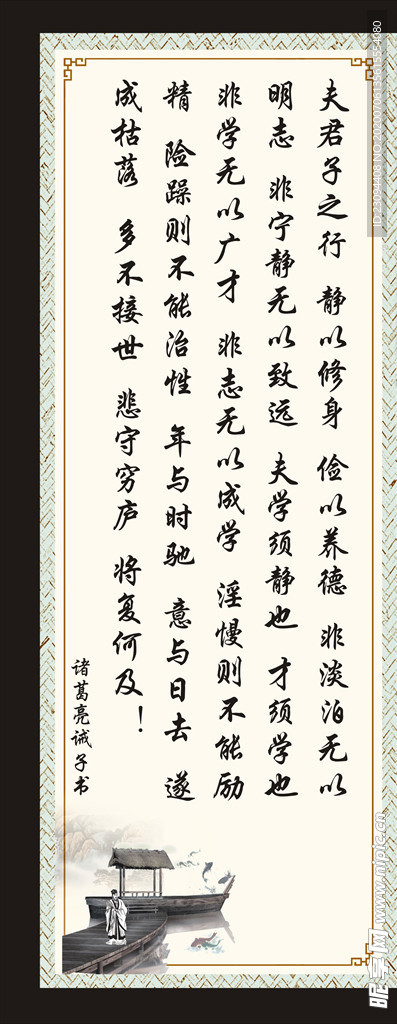 夫君子之行 静以修身 俭以养德 非淡泊无以
明志 非宁静无以致远 夫学须静也 才须学也
非学无以广才 非志无以成学 淫慢则不能励
精 险躁则不能治性 年与时驰 意与日去 遂
成枯落 多不接世 悲守穷庐 将复何及！
诸葛亮诫子书
昵享网 www.nipic.cn